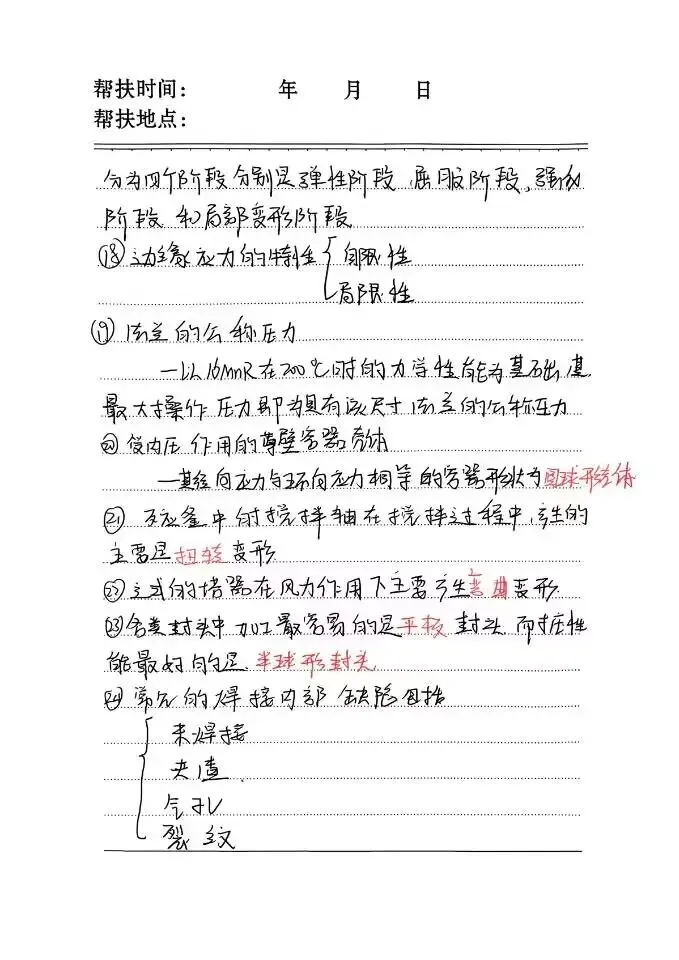 帮扶时间： 年 月 日
帮扶地点：
分为四个阶段分别是弹性阶段、屈服阶段、强化
阶段 和局部变形阶段
⑱ 边缘应力的特性 自限性
局限性
⑲ 法兰的公称压力
一以16MnR在200℃时的力学性能为基础其
最大操作压力即为具有该尺寸法兰的公称压力
⑳ 仅内压作用的薄壁容器壳体
一其径向应力与环向应力相等的容器形状为圆球形壳体
㉑ 反应釜中的搅拌轴在搅拌过程中，产生的
主要是扭转变形
㉒ 立式的塔器在风力作用下主要产生弯曲变形
㉓ 各类封头中加工最容易的是平板封头 而抗压性
能最好的是 半球形封头
㉔ 常见的焊接内部缺陷包括
未焊接
夹渣
气孔
裂纹